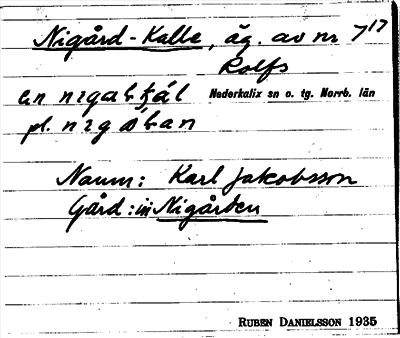 Nigård-Kalle, äg. av nr 7¹⁷
Rolfs
Nederkalix sn o. tg. Norrb. län
pl.
Namn: Karl Jakobsson
Gård: Nigården
RUBEN DANIELSSON 1935